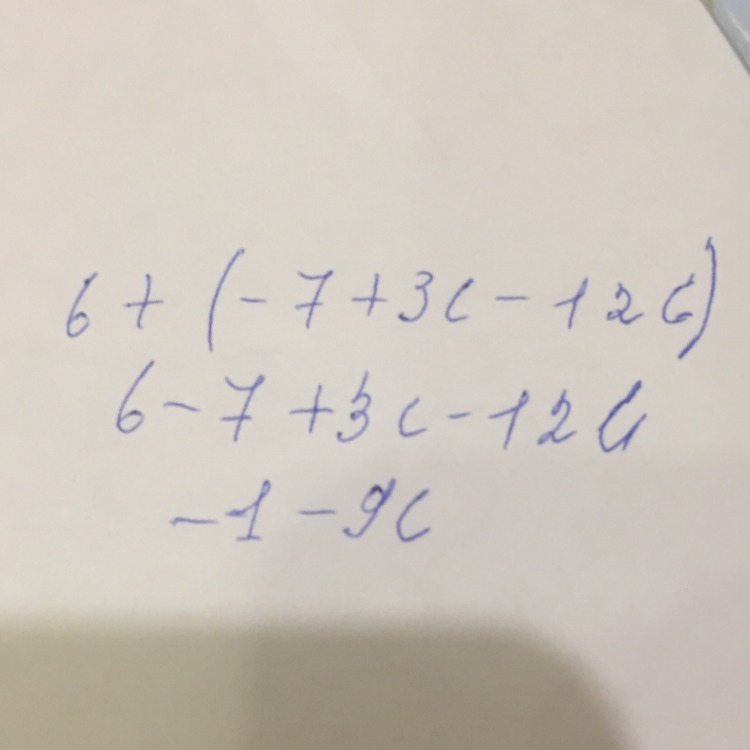 6 + (-7 + 3c - 12c)
6 - 7 + 3c - 12c
-1 - 9c